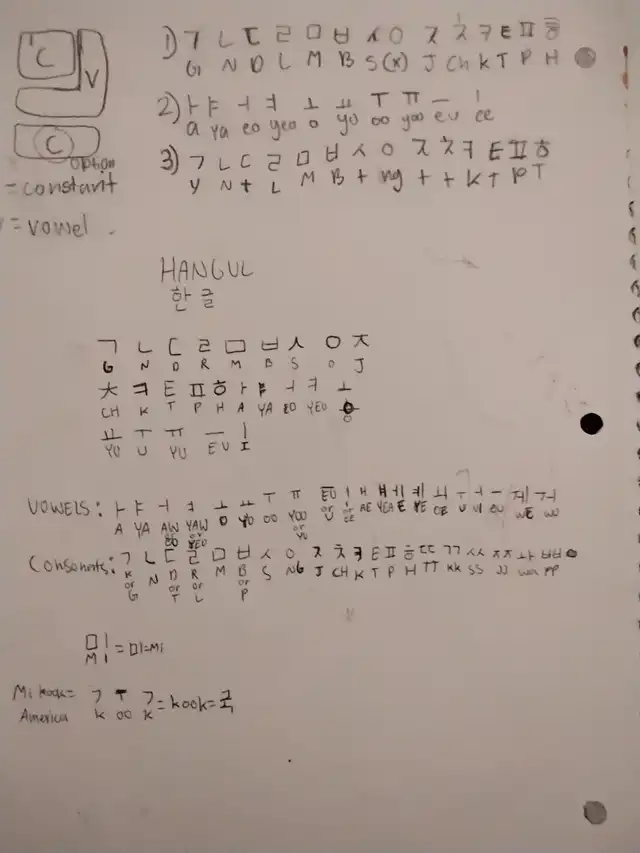 C
V
C
option
= constant
= vowel.
1) ㄱ ㄴ ㄷ ㄹ ㅁ ㅂ ㅅ ㅇ ㅈ ㅊ ㅋ ㅌ ㅍ ㅎ
G N D L M B S (x) J Ch K T P H
2) ㅏ ㅑ ㅓ ㅕ ㅗ ㅛ ㅜ ㅠ ㅡ ㅣ
a ya eo yeo o yo oo yoo eu ee
3) ㄱ ㄴ ㄷ ㄹ ㅁ ㅂ ㅅ ㅇ ㅈ ㅊ ㅋ ㅌ ㅍ ㅎ
Y N t L M B t ng t t K T P T
HANGUL
한글
ㄱ ㄴ ㄷ ㄹ ㅁ ㅂ ㅅ ㅇ ㅈ
G N D R M B S O J
ㅊ ㅋ ㅌ ㅍ ㅎ ㅏ ㅑ ㅓ ㅕ ㅗ
CH K T P H A YA EO YEO
ㅛ ㅜ ㅠ ㅡ ㅣ
YO U YU EU I
VOWELS: ㅏ ㅑ ㅓ ㅕ ㅗ ㅛ ㅜ ㅠ
A YA AW YAW O YO OO YOO
Consonents: ㄱ ㄴ ㄷ ㄹ ㅁ ㅂ ㅅ ㅇ ㅈ ㅊ ㅋ ㅌ ㅍ ㅎ ㄸ ㄲ ㅆ ㅉ ㅘ ㅃ
K N D R M B S NG J CH K T P H TT KK SS JJ wa PP
or or or or
G T L P
ㅁㅣ = 미 = Mi
M i
Mi kook = ㄱ ㅜ ㄱ = kook = 국
America k oo k